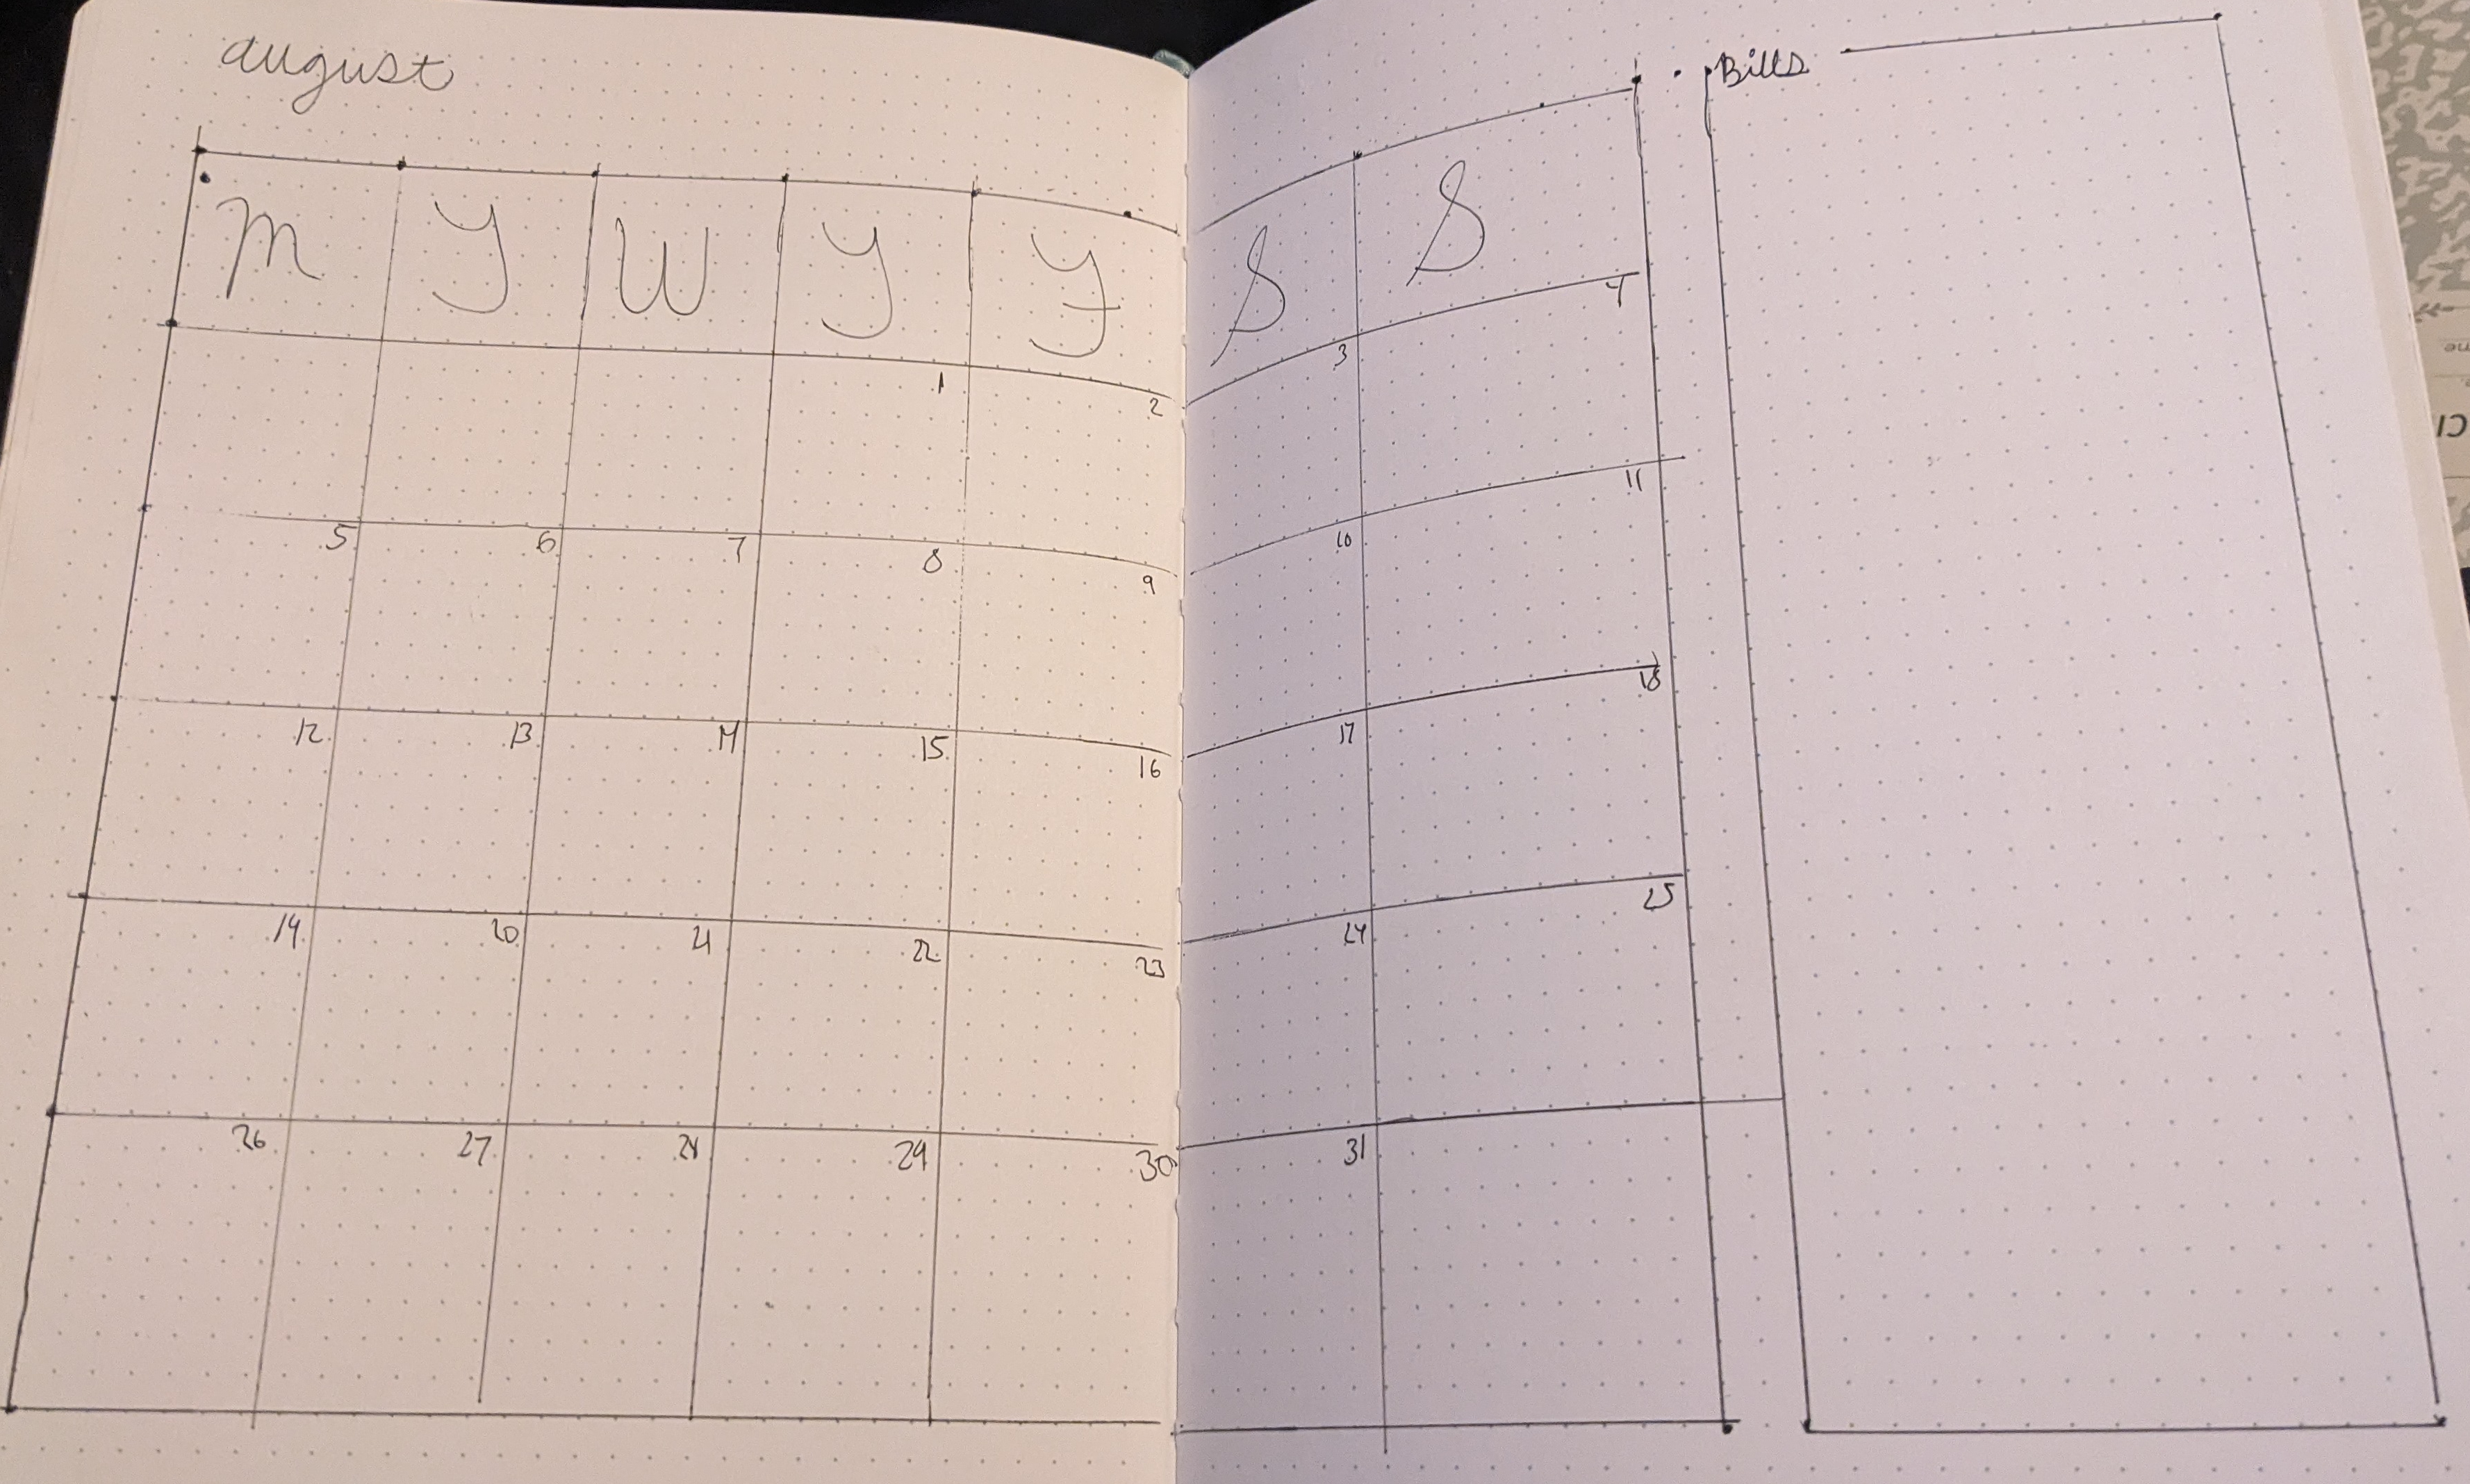 august
Bills
M T W T F S S
1 2 3 4
5 6 7 8 9 10 11
12 13 14 15 16 17 18
19 20 21 22 23 24 25
26 27 28 29 30 31